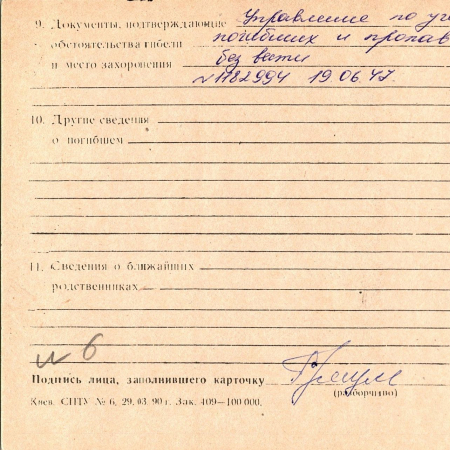 9. Документы, подтверждающие Управление по уче
обстоятельства гибели погибших и пропав
и место захоронения без вести
№1182994 19.06.47.
10. Другие сведения
о погибшем
11. Сведения о ближайших
родственниках
№ 6
Подпись лица, заполнившего карточку
(разборчиво)
Киев. СПТУ № 6, 29. 03. 90 г. Зак. 409—100 000.